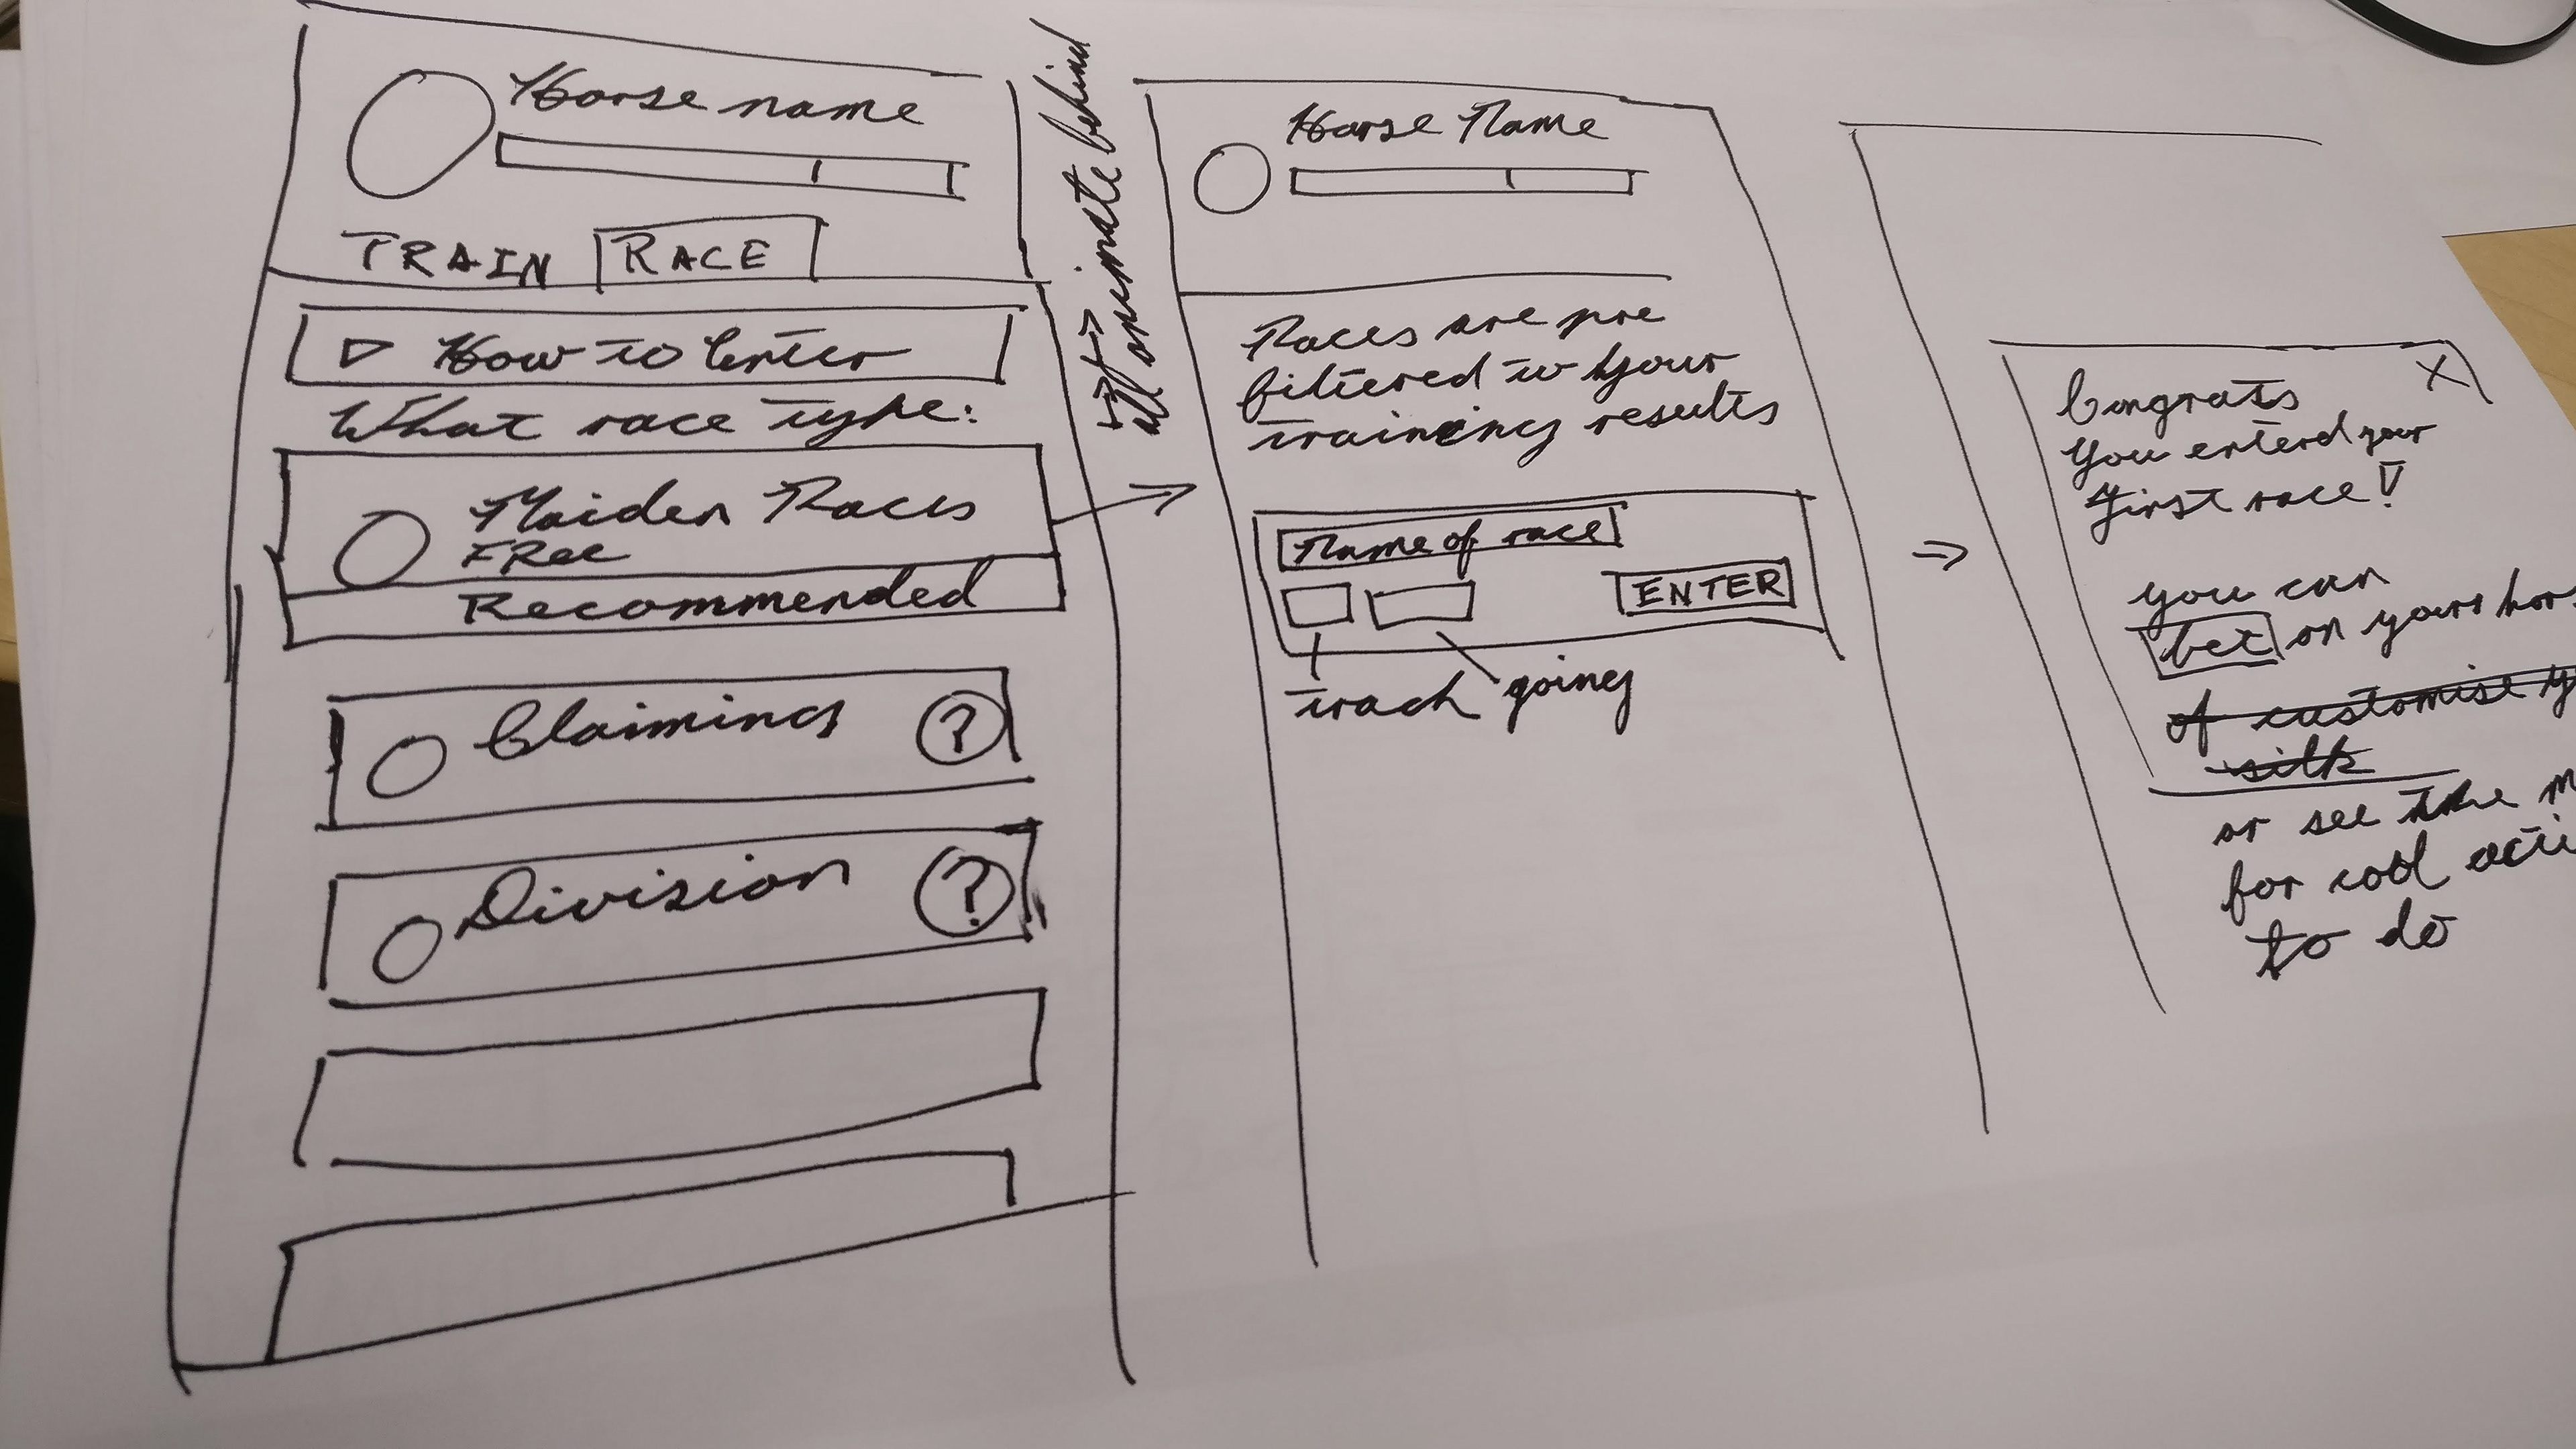 Horse name
TRAIN RACE
How to Enter
What race type:
Maiden Races
FRee
Recommended
Claiming ?
Division ?
all animate behind
Horse Name
Races are pre
filtered to your
training results
Name of race
ENTER
track going
X
Congrats
you enterd your
first race!
you can
bet on yours hors
customise y
silk
or see the m
for cool acti
to do